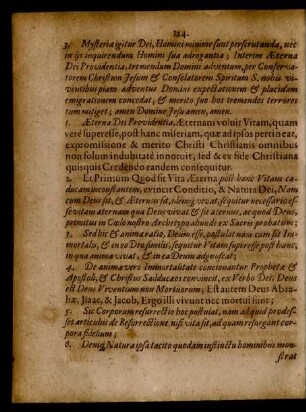 214.
3. Mysteria igitur Dei, Homini minime sunt perscrutanda, nec
in ijs inquirendum Homini sua adrogantia; Interim Æterna
Dei Providentia, tremendum Domini adventum, per Conserva-
torem Christum Jesum & Consolatorem Spiritum S. nobis vi-
ventibus piam adventus Domini expectationem & placidam
emigrationem concedat, & merito suo hos tremendos terrores
tum mitiget; amen Domine Jesu amen, amen.
1. Æterna Dei Providentia, Æternam voluit Vitam, quam
veré superesse, post hanc miseriam, quæ ad ipsos pertineat,
expromissione & merito Christi Christianis omnibus
non solum indubitaté innotuit, sed & ex fide Christiana
quisquis Credendo eandem consequitur.
2. Et Primum Quod si Vita Æterna post hanc Vitam ca-
ducam inconstantem, evincit Conditio, & Natura Dei, Nam
cum Deus sit, & Æternus sit, idemq; vivat, sequitur necessario es-
se vitam aternam qua Deus vivat & sit aternus, ac quod Deus
primitus in Cælo nostro Archetypo abunde ex Sacris probatum;
3. Sed hic & anima ratio, Deum esse, postulat nam cum sit Im-
mortalis, & in eo Deo similis, sequitur Vitam superesse post hanc,
in qua anima vivat, & in ea Deum adgnoscat;
4. De anima vero immortalitate concionantur Prophetæ &
Apostoli, & Christus Salducaos convincit, ex Verbo Dei; Deus
est Deus Vivventium non Mortuorum; Est autem Deus Abra-
hæ, Jsaac, & Jacob, Ergo illi vivunt nec mortui sunt;
5. Sic Corporum resurrectio hoc postulat, nam ad quid prodes-
set articulus de Resurrectione nisi vita sit, ad quam resurgant cor-
pora fidelium;
6. Deniq; Natura ipsa tacito quodam instinctu hominibus mon-
strat